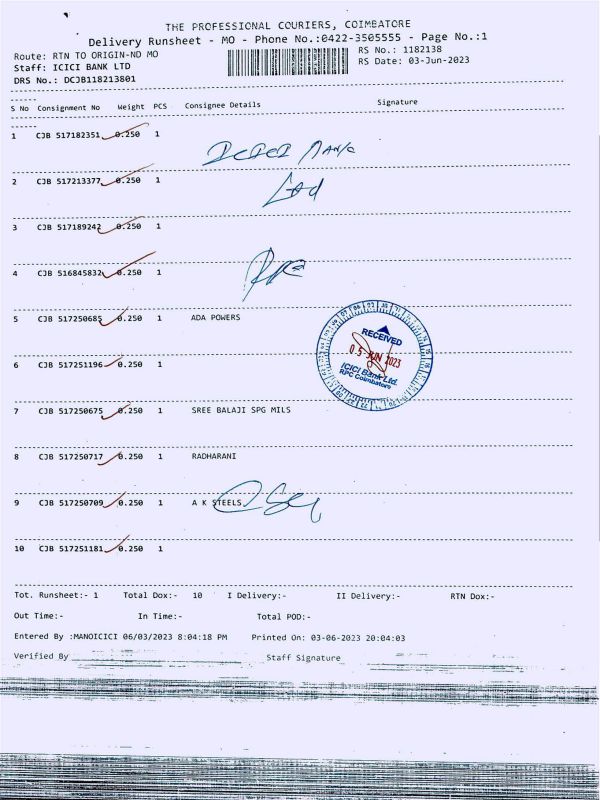 THE PROFESSIONAL COURIERS, COIMBATORE
Delivery Runsheet - MO - Phone No.:0422-3505555 - Page No.:1
Route: RTN TO ORIGIN-ND MO
RS No.: 1182138
Staff: ICICI BANK LTD
RS Date: 03-Jun-2023
DRS No.: DCJB118213801
S No Consignment No Weight PCS Consignee Details Signature
1 CJB 517182351 0.250 1
ICICI Bank
2 CJB 517213377 0.250 1
Ltd
3 CJB 517189242 0.250 1
4 CJB 516845832 0.250 1
RPC
5 CJB 517250685 0.250 1 ADA POWERS
RECEIVED
05 JUN 2023
ICICI Bank Ltd.
RPC Coimbatore
6 CJB 517251196 0.250 1
7 CJB 517250675 0.250 1 SREE BALAJI SPG MILS
8 CJB 517250717 0.250 1 RADHARANI
9 CJB 517250709 0.250 1 A K STEELS
10 CJB 517251181 0.250 1
Tot. Runsheet:- 1 Total Dox:- 10 I Delivery:- II Delivery:- RTN Dox:-
Out Time:- In Time:- Total POD:-
Entered By :MANOICICI 06/03/2023 8:04:18 PM Printed On: 03-06-2023 20:04:03
Verified By Staff Signature